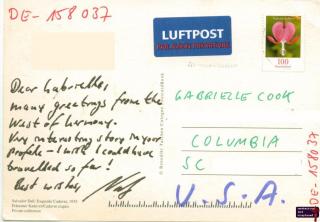 DE-158037
LUFTPOST
PAR AVION PRIORITAIRE
100
Dear Gabrielle,
many greetings from the
West of Germany.
Very interesting story in your
profile - I wish I could have
travelled so far!
Best wishes,
GABRIELLE COOK
COLUMBIA
SC
U.S.A.
DE-158037